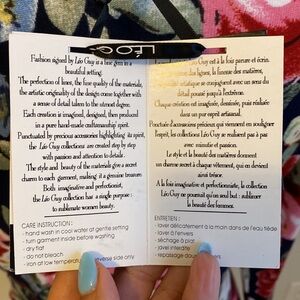 LÉO G
Fashion signed by Léo Guy is a fine gem in a
beautiful setting.
The perfection of lines, the fine quality of the materials,
the artistic originality of the design come together with
a sense of detail taken to the utmost degree.
Each creation is imagined, designed, then produced
in a pure hand-made craftsmanship spirit.
Punctuated by precious accessories highlighting its spirit,
the Léo Guy collections are created step by step
with passion and attention to details.
The style and beauty of the materials give a secret
charm to each garment, making it a genuine treasure.
Both imaginative and perfectionist,
the Léo Guy collection has a unique purpose :
to sublimate women beauty.
CARE INSTRUCTION :
- hand wash in cool water at gentle setting
- turn garment inside before washing
- dry flat
- do not bleach
- iron at low temperature reverse side only
est à la fois parure et écrin.
des lignes, la finesse des matières,
artistique se conjuguent avec un sens
du détail poussé jusqu'à l'extrême.
Chaque création est imaginée, dessinée, puis réalisée
dans un pur esprit artisanal.
Ponctuée d'accessoires précieux qui viennent en souligner
l'esprit, les collections Léo Guy se réalisent pas à pas
avec minutie et passion.
Le style et la beauté des matières donnent
un charme secret à chaque vêtement, qui en devient
ainsi trésor.
A la fois imaginative et perfectionniste, la collection
Léo Guy ne poursuit qu'un seul but : sublimer
la beauté des femmes.
ENTRETIEN :
- laver délicatement à la main dans de l'eau tiède
- laver à l'envers
- séchage à plat
- javel interdite
- repassage doux envers